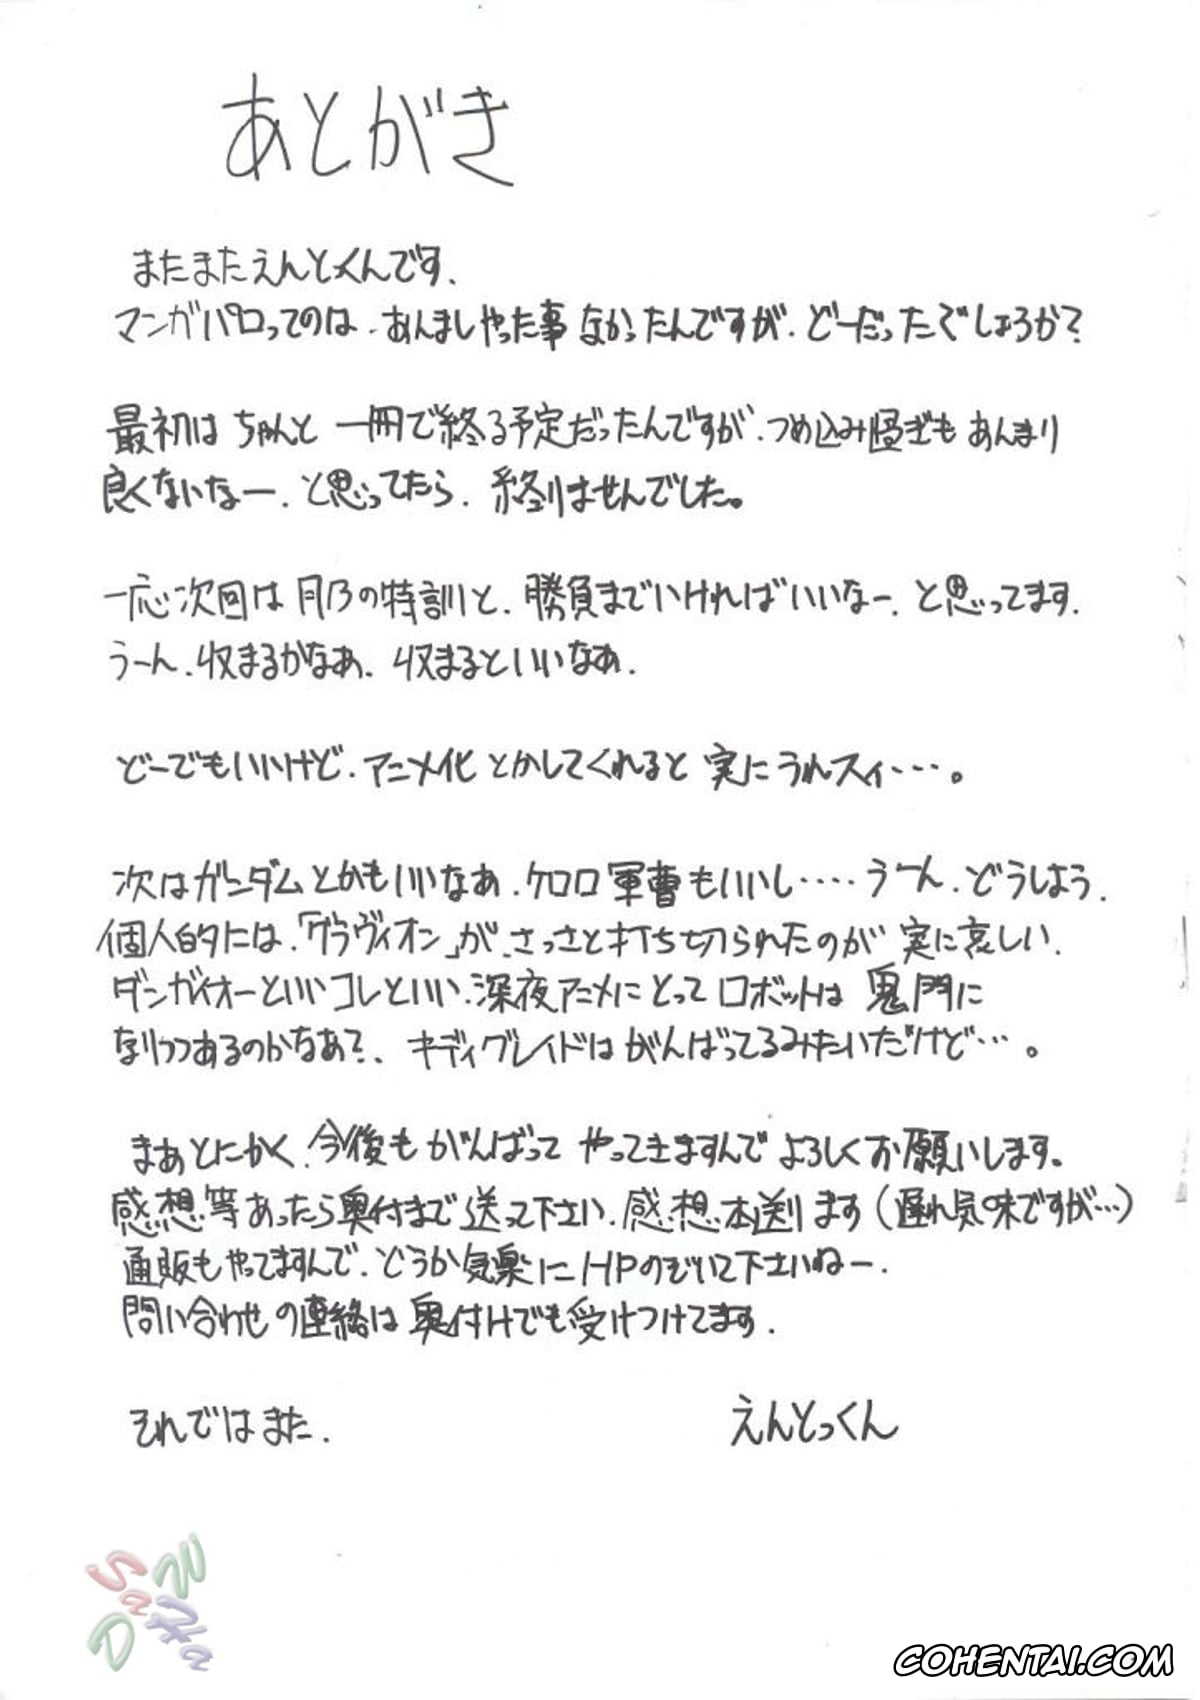 あとがき
またまたえんとっくんです.
マンガパロってのは、あんましやった事なかったんですが、どーだったでしょろか?
最初はちゃんと一冊で終る予定だったんですが、つめ込み過ぎもあんまり
良くないなー、と思ってたら、終りませんでした。
一応次回は月乃の特訓と、勝負までいければいいなー、と思ってます.
うーん、収まるかなあ、収まるといいなあ.
どーでもいいけど、アニメ化とかしてくれると実にうれスィ・・・・。
次はガンダムとかもいいなあ、ケロロ軍曹もいいし・・・・うーん、どうしよう.
個人的には、「グラヴィオン」が、さっさと打ち切られたのが実に哀しい.
ダンガイオーといいコレといい、深夜アニメにとってロボットは鬼門に
なりつつあるのかなあ?、キディグレイドはがんばってるみたいだけど・・・。
まあとにかく、今後もがんばってやってきますんでよろしくお願いします。
感想等あったら奥付まで送って下さい、感想本送ります(遅れ気味ですが・・・)
通販もやってますんで、どうか気楽にHPのぞいて下さいねー.
問い合わせの連絡は奥付けでも受けつけてます.
それではまた.
えんとっくん
SaHa
COHENTAI.COM